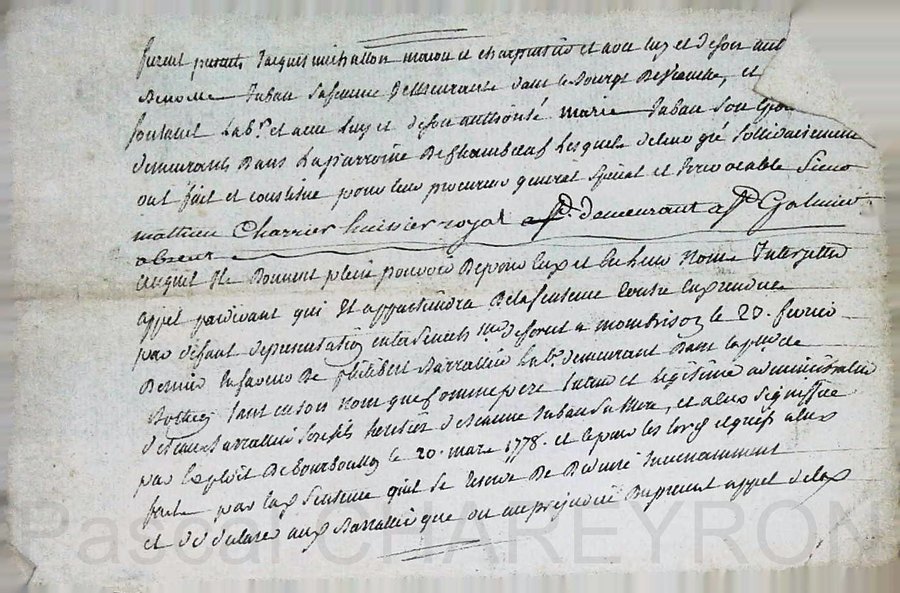 furent présents Jacques michallon maçon et charpentier et avec luy et de son aut
Benoitte Juban sa femme demeurants dans le Bourg de ... et
fontanet Lab.r et avec luy et de son authorité marie Juban son Epou
demeurants Dans la parroisse De Chambœuf Lesquels de leur gré sollidairement
ont fait et constitué pour leur procureur general spécial et Irrevocable Sieur
mathieu Charrier huissier royal demeurant a St Galmier
absent
auquel Ils Donnent plein pouvoir De pour Eux et En leur Nom Interjetter
appel pardevant qui Il appartiendra De la sentence contre Eux rendue
par défaut de presentation en la Senech.ée de forest a montbrison le 20. fevrier
Dernier En faveur De philibert Barrallier Lab.r demeurant Dans la p.sse de
tant en son nom que comme pere Tuteur et Legitime administrateur
de Jean Barrallier son fils heritier de Jeanne Juban sa Mere, et a Eux signiffiée
par Exploit De Bourboullon le 20. mars 1778. et le pour les torts et griefs a Eux
faits par la de Sentence qu'il se reserve De Deduire
et de declarer aux Barrallier que ou au prejudice Du present appel de la
Pascal CHAREYRON